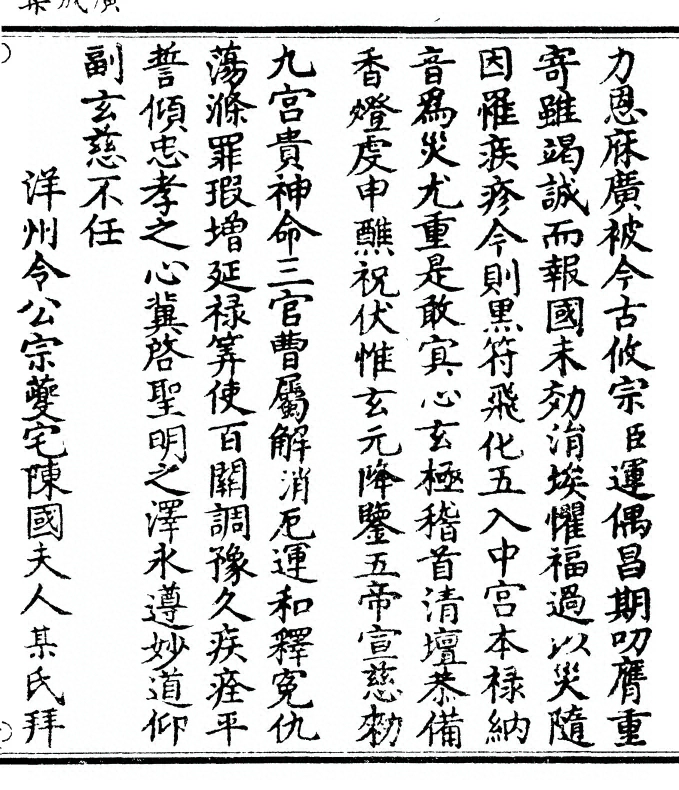 力恩庥廣被今古攸宗臣運偶昌期叨膺重
寄雖竭誠而報國未効涓埃懼福過以災隨
因罹疾疹今則黒符飛化五入中宫本禄納
音爲災尤重是敢寅心玄極稽首清壇恭備
香燈虔申醮祝伏惟玄元降鑒五帝宣慈勑
九宫貴神命三官曹屬解消厄運和釋寃仇
蕩滌罪瑕增延禄筭使百關調豫久疾痊平
誓傾忠孝之心冀啓聖明之澤永遵妙道仰
副玄慈不任
洋州令公宗夔宅陳國夫人某氏拜